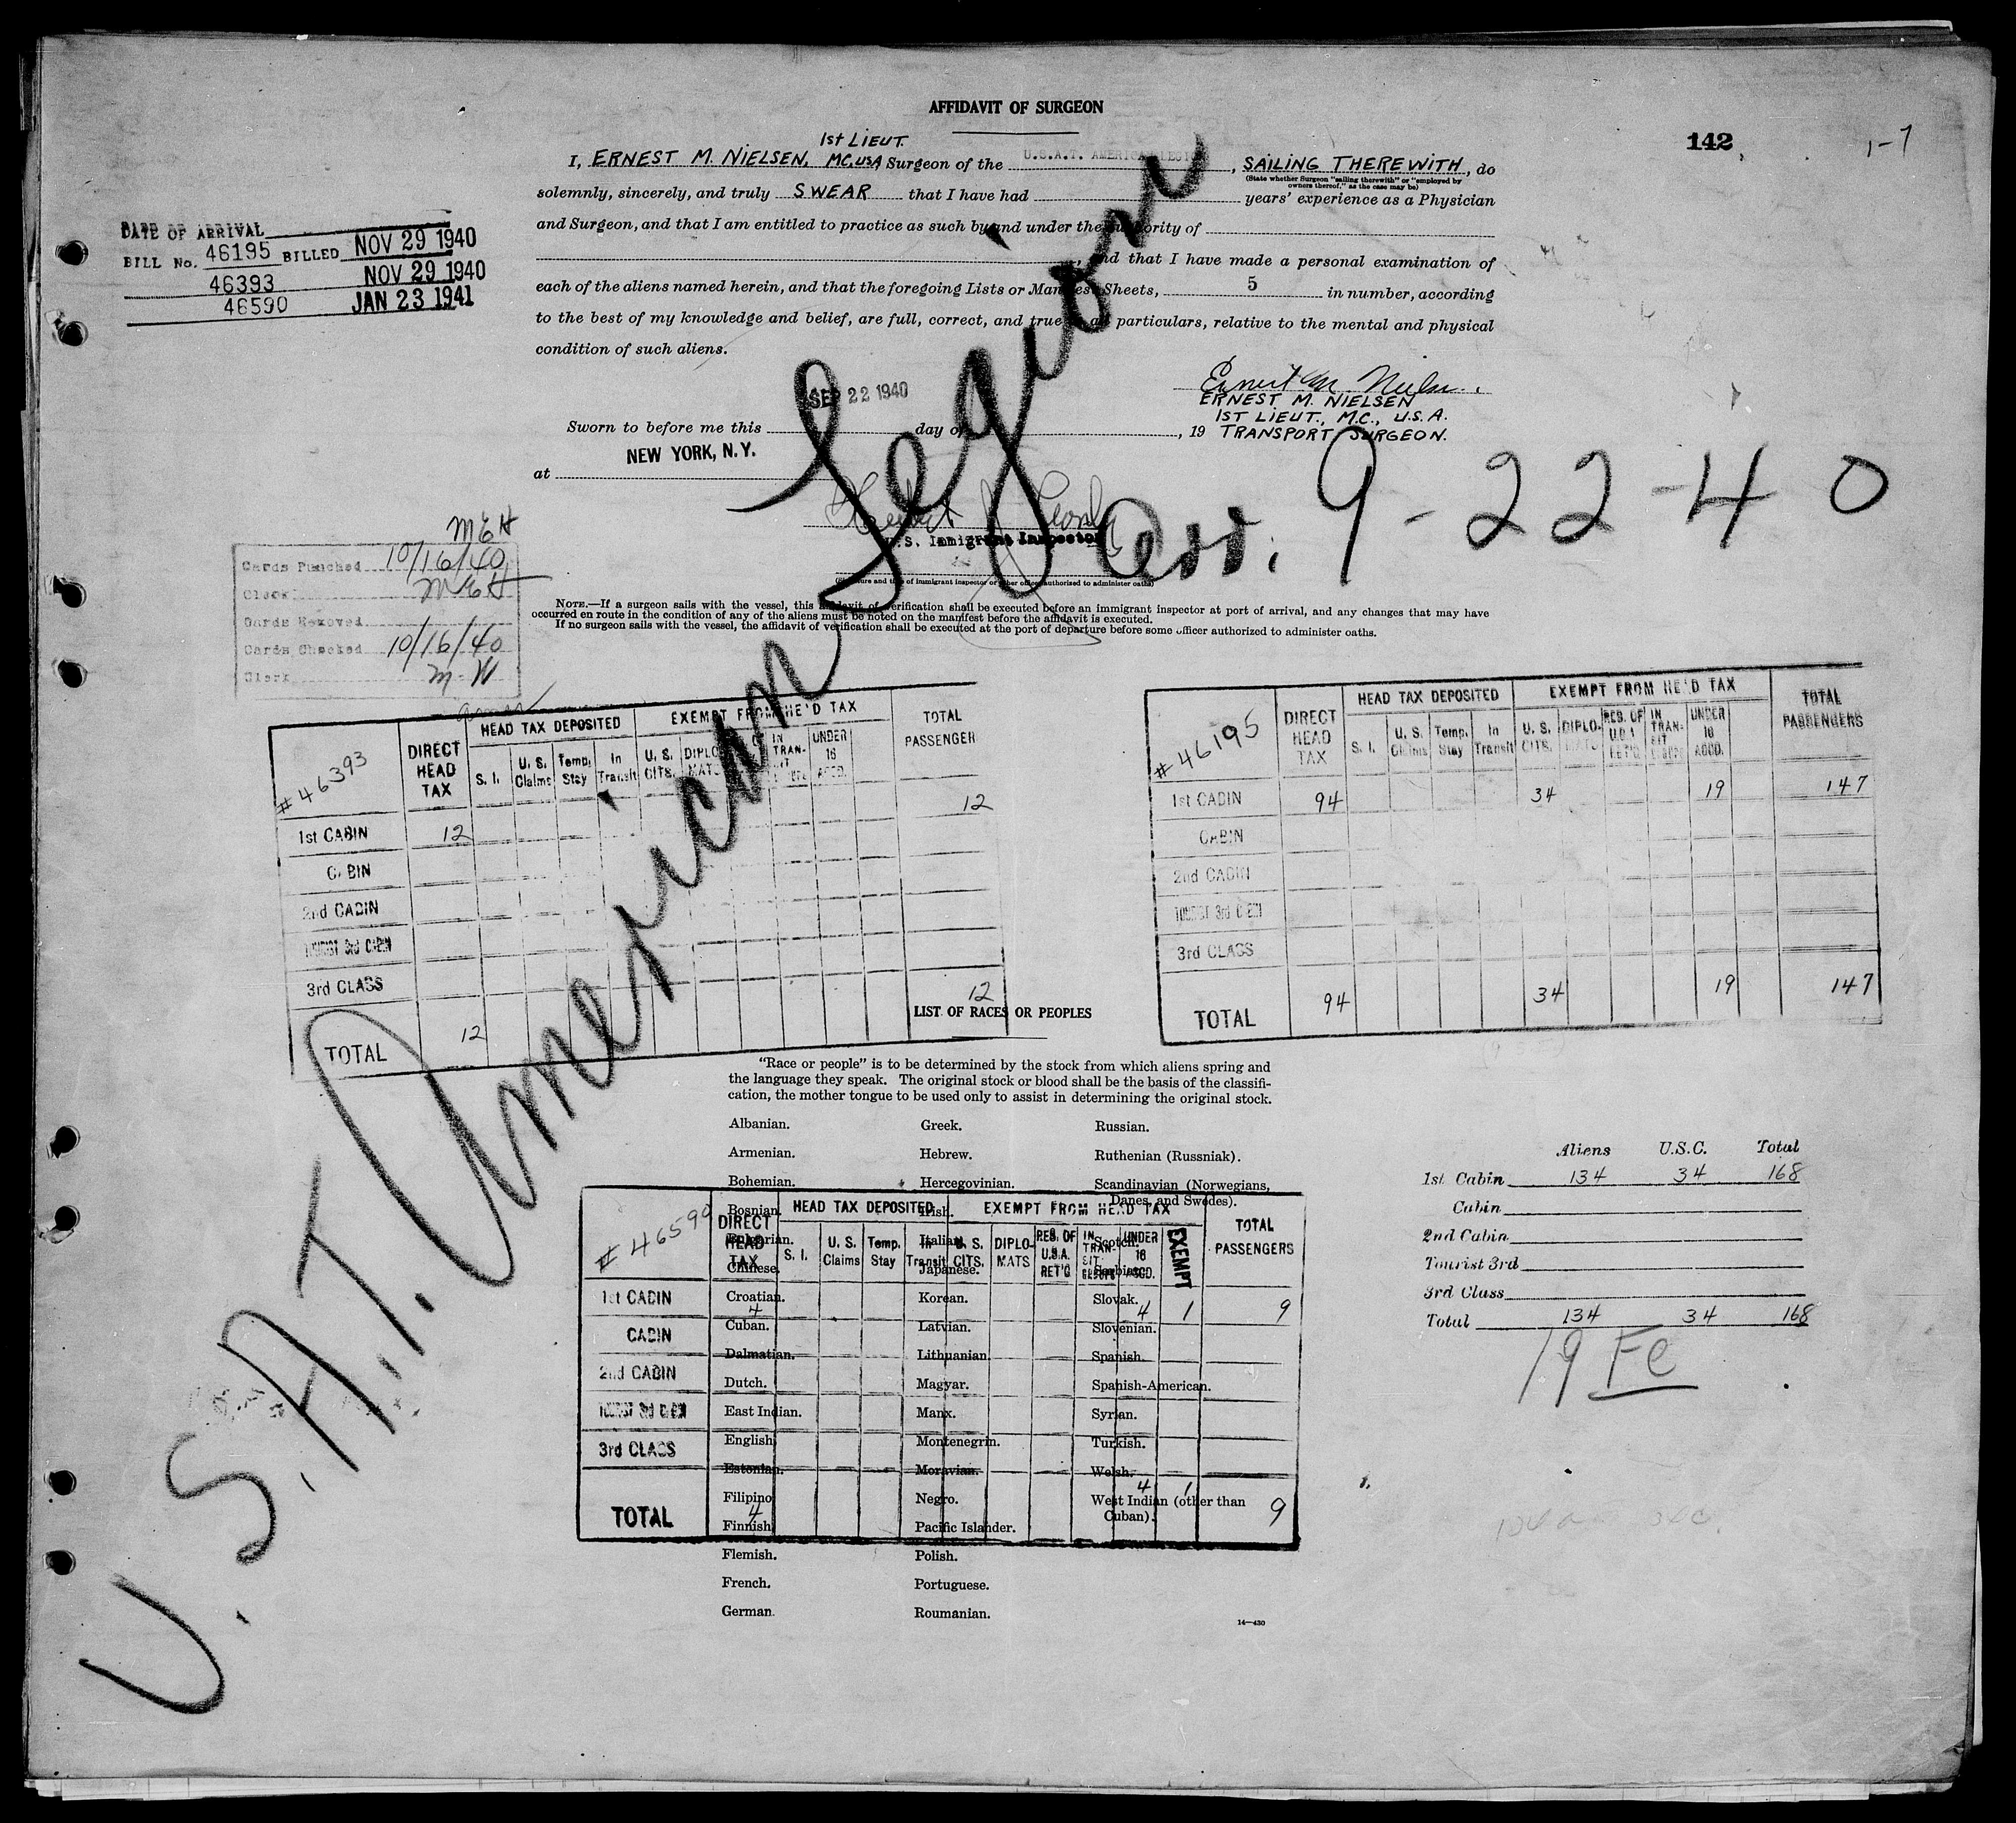 AFFIDAVIT OF SURGEON
142
1-7
1st LIEUT.
I, ERNEST M. NIELSEN, MC, USA, Surgeon of the U.S.A.T. AMERICAN LEGION, SAILING THEREWITH, do
(State whether Surgeon "sailing therewith" or "employed by
owners thereof," as the case may be)
solemnly, sincerely, and truly SWEAR that I have had years' experience as a Physician
and Surgeon, and that I am entitled to practice as such by and under the authority of
, and that I have made a personal examination of
each of the aliens named herein, and that the foregoing Lists or Manifest Sheets, 5 in number, according
to the best of my knowledge and belief, are full, correct, and true in all particulars, relative to the mental and physical
condition of such aliens.
DATE OF ARRIVAL
BILL No. 46195 BILLED NOV 29 1940
46393 NOV 29 1940
46590 JAN 23 1941
Ernest M. Nielsen.
ERNEST M. NIELSEN
1ST LIEUT., M.C., U.S.A.
TRANSPORT SURGEON.
SEP 22 1940
Sworn to before me this day of , 19
NEW YORK, N.Y.
at
U.S. Immigrant Inspector
(Signature and title of immigrant inspector or other officer authorized to administer oaths)
U.S.A.T. American Legion
arr. 9-22-40
NOTE.—If a surgeon sails with the vessel, this affidavit of verification shall be executed before an immigrant inspector at port of arrival, and any changes that may have
occurred en route in the condition of any of the aliens must be noted on the manifest before the affidavit is executed.
If no surgeon sails with the vessel, the affidavit of verification shall be executed at the port of departure before some officer authorized to administer oaths.
MEH
Cards Punched 10/16/40
Clerk MEH
Cards Removed
Cards Checked 10/16/40
Clerk M H
#46393
DIRECT HEAD TAX
HEAD TAX DEPOSITED
S. I. U. S. Claims Temp. Stay In Transit
EXEMPT FROM HE'D TAX
U. S. CITS. DIPLOMATS IN TRANSIT UNDER 16 ACCD.
TOTAL PASSENGER
1st CABIN 12 12
CABIN
2nd CABIN
TOURIST 3rd CABIN
3rd CLASS
TOTAL 12 12
#46195
DIRECT HEAD TAX
HEAD TAX DEPOSITED
S. I. U. S. Claims Temp. Stay In Transit
EXEMPT FROM HE'D TAX
U. S. CITS. DIPLOMATS RES. OF U.S.A. RET'G IN TRANSIT UNDER 16 ACCD.
TOTAL PASSENGERS
1st CABIN 94 34 19 147
CABIN
2nd CABIN
TOURIST 3rd CABIN
3rd CLASS
TOTAL 94 34 19 147
LIST OF RACES OR PEOPLES
"Race or people" is to be determined by the stock from which aliens spring and
the language they speak. The original stock or blood shall be the basis of the classifi-
cation, the mother tongue to be used only to assist in determining the original stock.
Albanian.
Armenian.
Bohemian.
Bosnian.
Bulgarian.
Chinese.
Croatian.
Cuban.
Dalmatian.
Dutch.
East Indian.
English.
Estonian.
Filipino.
Finnish.
Flemish.
French.
German.
Greek.
Hebrew.
Hercegovinian.
Irish.
Italian.
Japanese.
Korean.
Latvian.
Lithuanian.
Magyar.
Manx.
Montenegrin.
Moravian.
Negro.
Pacific Islander.
Polish.
Portuguese.
Roumanian.
Russian.
Ruthenian (Russniak).
Scandinavian (Norwegians,
Danes, and Swedes).
Scotch.
Serbian.
Slovak.
Slovenian.
Spanish.
Spanish-American.
Syrian.
Turkish.
Welsh.
West Indian (other than
Cuban).
#46590
DIRECT HEAD TAX
HEAD TAX DEPOSITED
S. I. U. S. Claims Temp. Stay In Transit
EXEMPT FROM HEAD TAX
U. S. CITS. DIPLOMATS RES. OF U.S.A. RET'G IN TRANSIT UNDER 16 ACCD. EXEMPT
TOTAL PASSENGERS
1st CABIN 4 4 1 9
CABIN
2nd CABIN
TOURIST 3rd CABIN
3rd CLASS
TOTAL 4 4 1 9
Aliens U.S.C. Total
1st Cabin 134 34 168
Cabin
2nd Cabin
Tourist 3rd
3rd Class
Total 134 34 168
19 Fe
14—430